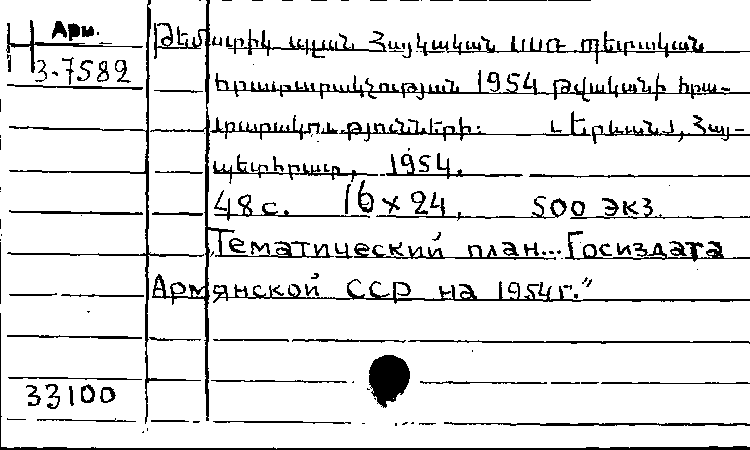 Арм.
Թեմատիկ պլան Հայկական ՍՍՌ պետական
3-7582
հրատարակչության 1954 թվականի հրա-
տարակությունների. Երևան, Հայ-
պետհրատ, 1954.
48 с. 16 x 24. 500 экз.
Тематический план... Госиздата
Армянской ССР на 1954 г."
33100